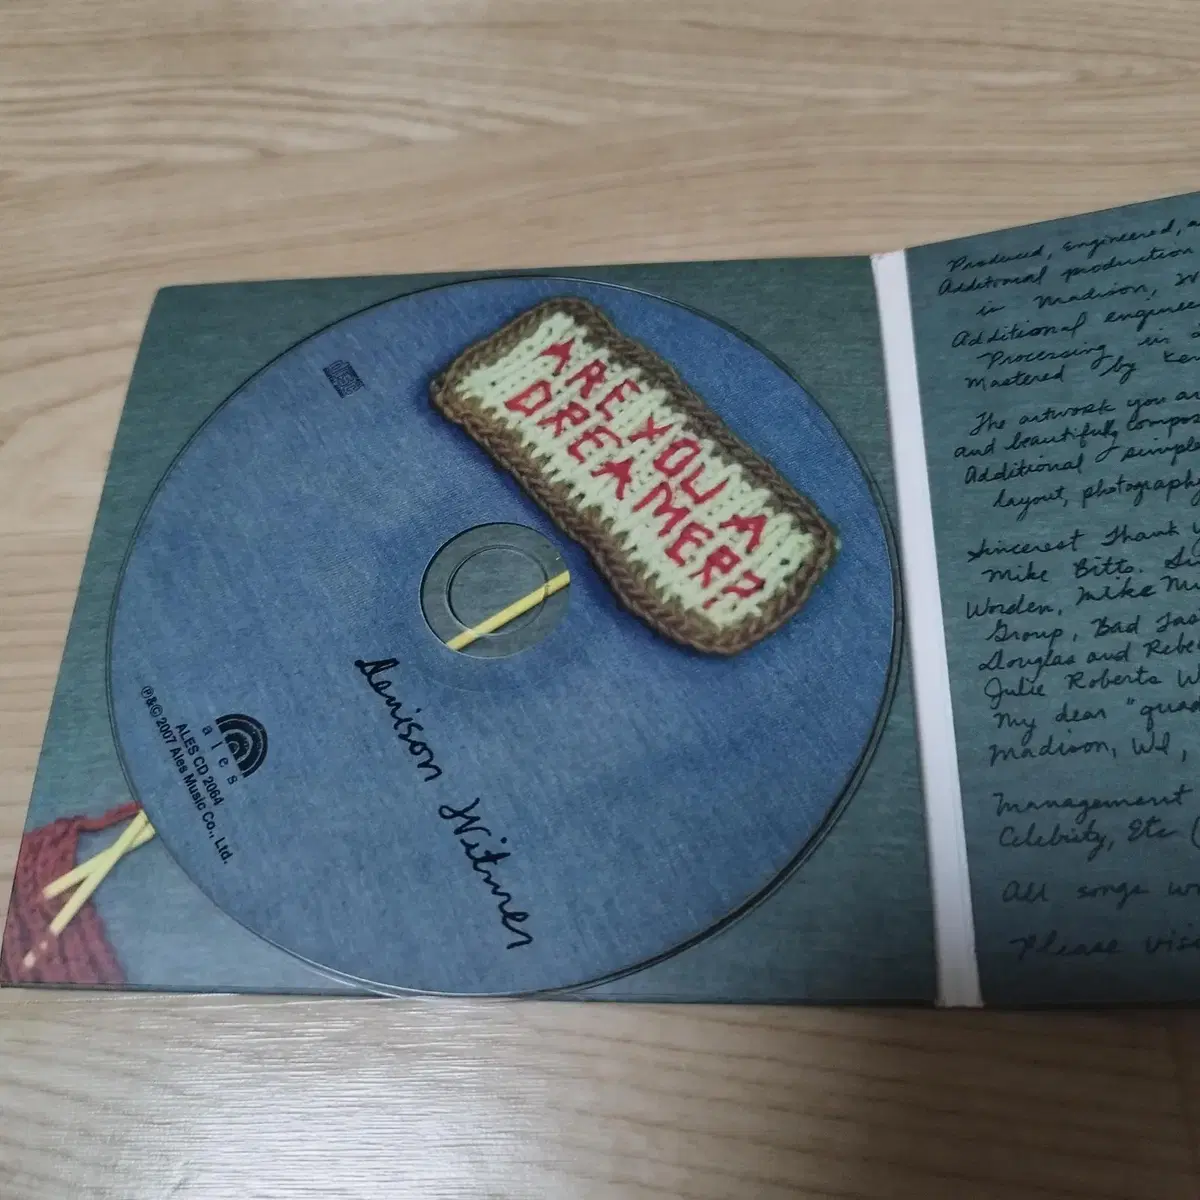 ARE YOU A
DREAMER?
Denison Witmer
ales
ALES CD 2064
℗&© 2007 Ales Music Co., Ltd.
Produced, engineered,
Additional production
in Madison, W
Additional enginee
Processing in
Mastered by Ken
The artwork you ar
and beautifully compo
Additional simple
layout, photography
Sincerest Thank y
Mike Bitto. Si
Worden, Mike Mu
Group, Bad Tas
Douglas and Rebe
Julie Roberts W
my dear "quad
Madison, WI,
Management
Celebrity, Etc (
All songs w
Please visi